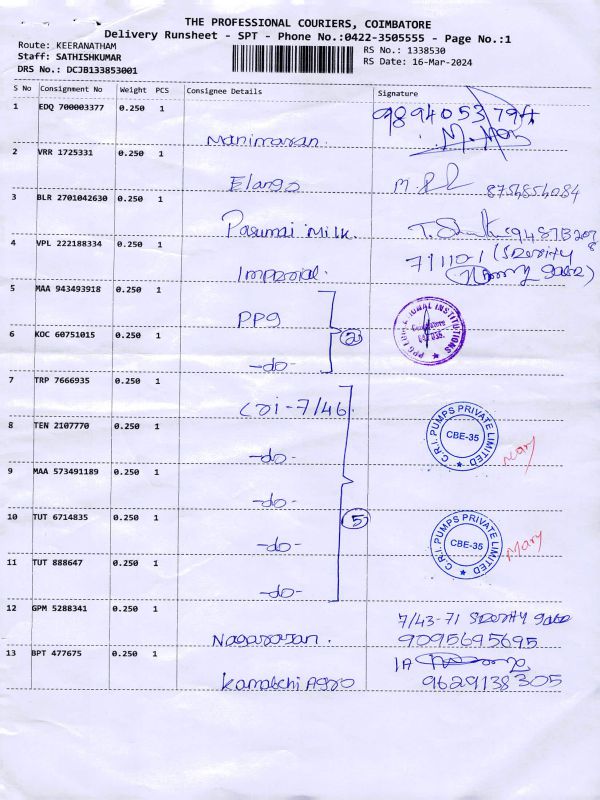 THE PROFESSIONAL COURIERS, COIMBATORE
Delivery Runsheet - SPT - Phone No.:0422-3505555 - Page No.:1
Route: KEERANATHAM
RS No.: 1338530
Staff: SATHISHKUMAR
RS Date: 16-Mar-2024
DRS No.: DCJB133853001
S No Consignment No Weight PCS Consignee Details Signature
1 EDQ 700003377 0.250 1
Manimaran.
2 VRR 1725331 0.250 1
Elango 8754854084
3 BLR 2701042630 0.250 1
Pasumai Milk.
4 VPL 222188334 0.250 1
Imperial.
5 MAA 943493918 0.250 1
PPG
2
6 KOC 60751015 0.250 1
-do-
7 TRP 7666935 0.250 1
7/46
8 TEN 2107770 0.250 1
C.R.I. PUMPS PRIVATE LIMITED
CBE-35
Mary
-do-
9 MAA 573491189 0.250 1
-do-
10 TUT 6714835 0.250 1
5
C.R.I. PUMPS PRIVATE LIMITED
CBE-35
Mary
-do-
11 TUT 888647 0.250 1
-do-
12 GPM 5288341 0.250 1
7/43-71
Nagarajan. 9095695695
13 BPT 477675 0.250 1
1A
Kamatchi Agro 9629138305